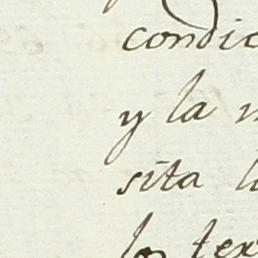 condic
y la
sita l
los tex